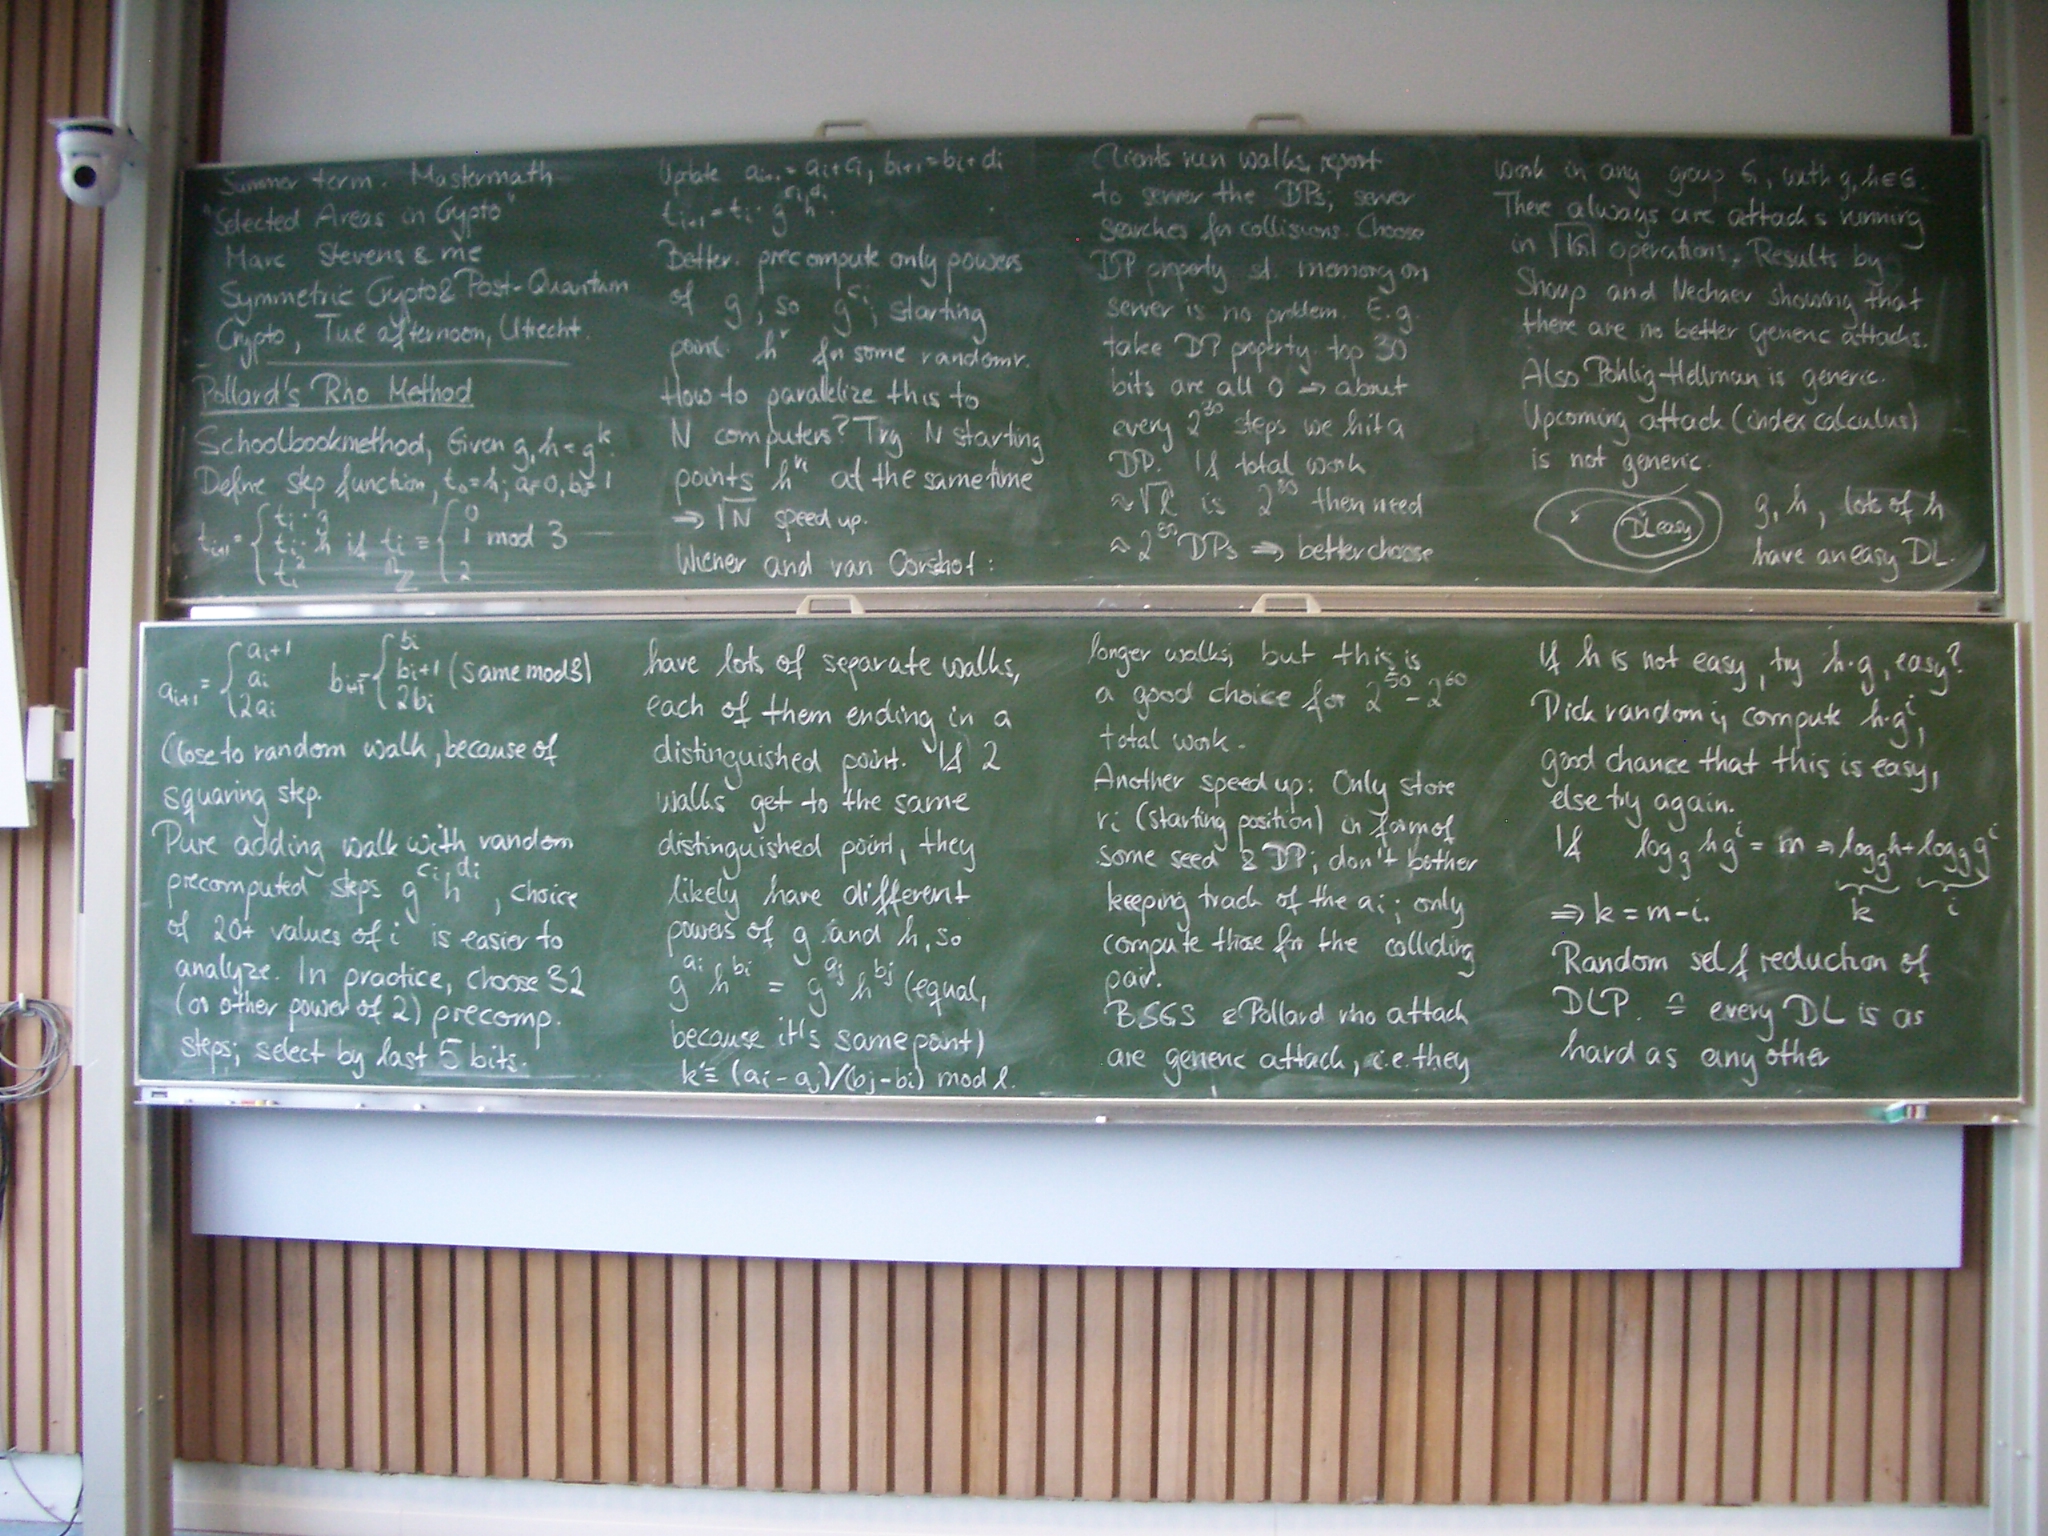 Summer term. Mastermath
"Selected Areas in Crypto"
Marc Stevens & me
Symmetric Crypto & Post-Quantum
Crypto, Tue afternoon, Utrecht.
Pollard's Rho Method
Schoolbookmethod, Given g, h = g^k.
Define step function, t₀ = h; a₀=0, b₀=1
t_{i+1} = { t_i · g
t_i · h if t_i ≡ { 0 1 2 mod 3
t_i²
∩ Z
a_{i+1} = { a_i+1
a_i
2a_i
b_{i+1} = { b_i
b_i+1 (same mod 3)
2b_i
Close to random walk, because of
squaring step.
Pure adding walk with random
precomputed steps g^{c_i} h^{d_i}, choice
of 20+ values of i is easier to
analyze. In practice, choose 32
(or other power of 2) precomp.
steps; select by last 5 bits.
Update a_{i+1} = a_i + c_i, b_{i+1} = b_i + d_i
t_{i+1} = t_i · g^{c_i} h^{d_i}.
Better. precompute only powers
of g, so g^{c_i}; starting
point h^r for some random r.
How to parallelize this to
N computers? Try N starting
points h^{r_i} at the same time
⇒ √N speed up.
Wiener and van Oorshot:
have lots of separate walks,
each of them ending in a
distinguished point. If 2
walks get to the same
distinguished point, they
likely have different
powers of g and h, so
g^{a_i} h^{b_i} = g^{a_j} h^{b_j} (equal,
because it's same point)
k ≡ (a_i - a_j)/(b_j - b_i) mod ℓ.
Clients run walks, report
to server the DPs; server
searches for collisions. Choose
DP property st. memory on
server is no problem. E.g.
take DP property: top 30
bits are all 0 → about
every 2^30 steps we hit a
DP. If total work
≈ √ℓ is 2^80 then need
≈ 2^50 DPs ⇒ better choose
longer walks, but this is
a good choice for 2^50 - 2^60
total work.
Another speed up: Only store
r_i (starting position) in form of
some seed & DP; don't bother
keeping track of the a_i; only
compute those for the colliding
pair.
BSGS & Pollard rho attack
are generic attack, i.e. they
work in any group G, with g, h ∈ G.
There always are attacks running
in √|G| operations. Results by
Shoup and Nechaev showing that
there are no better generic attacks.
Also Pohlig-Hellman is generic.
Upcoming attack (index calculus)
is not generic.
x DL easy
g, h, lots of h
have an easy DL.
If h is not easy, try h·g, easy?
Pick random i, compute h·g^i,
good chance that this is easy,
else try again.
If log_g h g^i = m ⇒ log_g h + log_g g^i
k i
⇒ k = m - i.
Random self reduction of
DLP. ≙ every DL is as
hard as any other